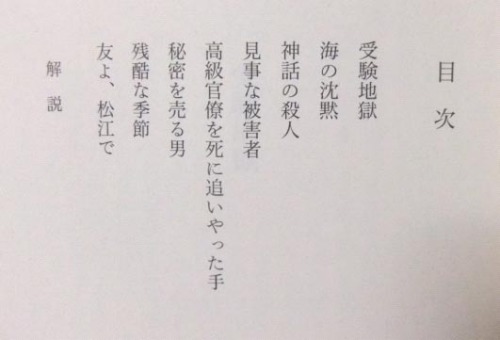 目次
受験地獄
海の沈黙
神話の殺人
見事な被害者
高級官僚を死に追いやった手
秘密を売る男
残酷な季節
友よ、松江で
解説